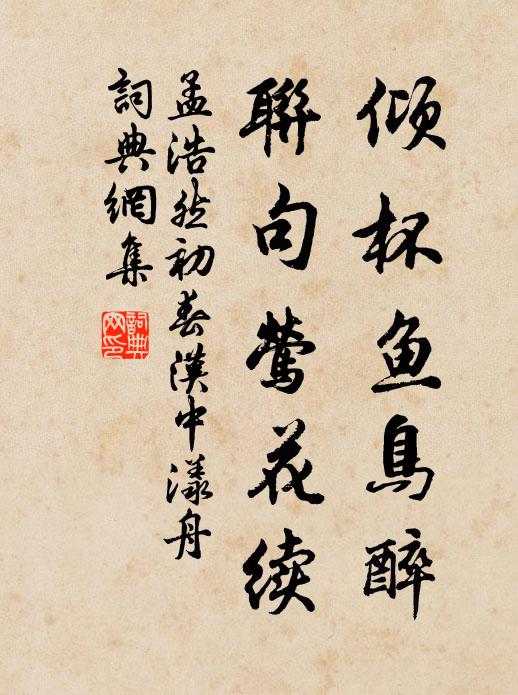 倾杯鱼鸟醉
聯句莺花续
孟浩然初春漢中漾舟
詞典網集
詞典網印